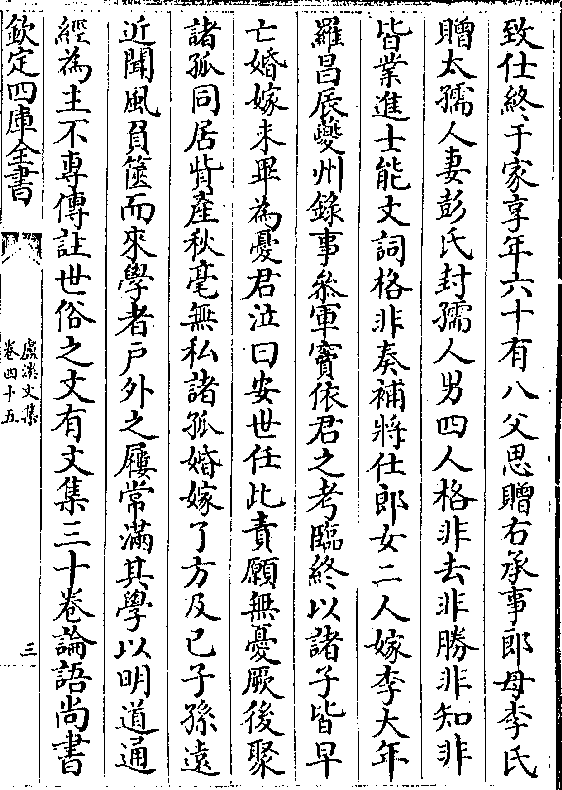 致仕終于家享年六十有八父思贈右承事郎母李氏
贈太孺人妻彭氏封孺人男四人格非去非勝非知非
皆業進士能文詞格非奏補將仕郎女二人嫁李大年
羅昌辰夔州錄事叅軍寶依君之考臨終以諸子皆早
亡婚嫁未畢為憂君泣曰安世任此責願無憂厥後聚
諸孤同居貲產秋毫無私諸孤婚嫁了方及已子孫遠
近聞風負篋而來學者戶外之屨常滿其學以明道通
經為主不專傳註世俗之文有文集三十卷論語尚書
欽定四庫全書
盧溪文集
卷四十五
三